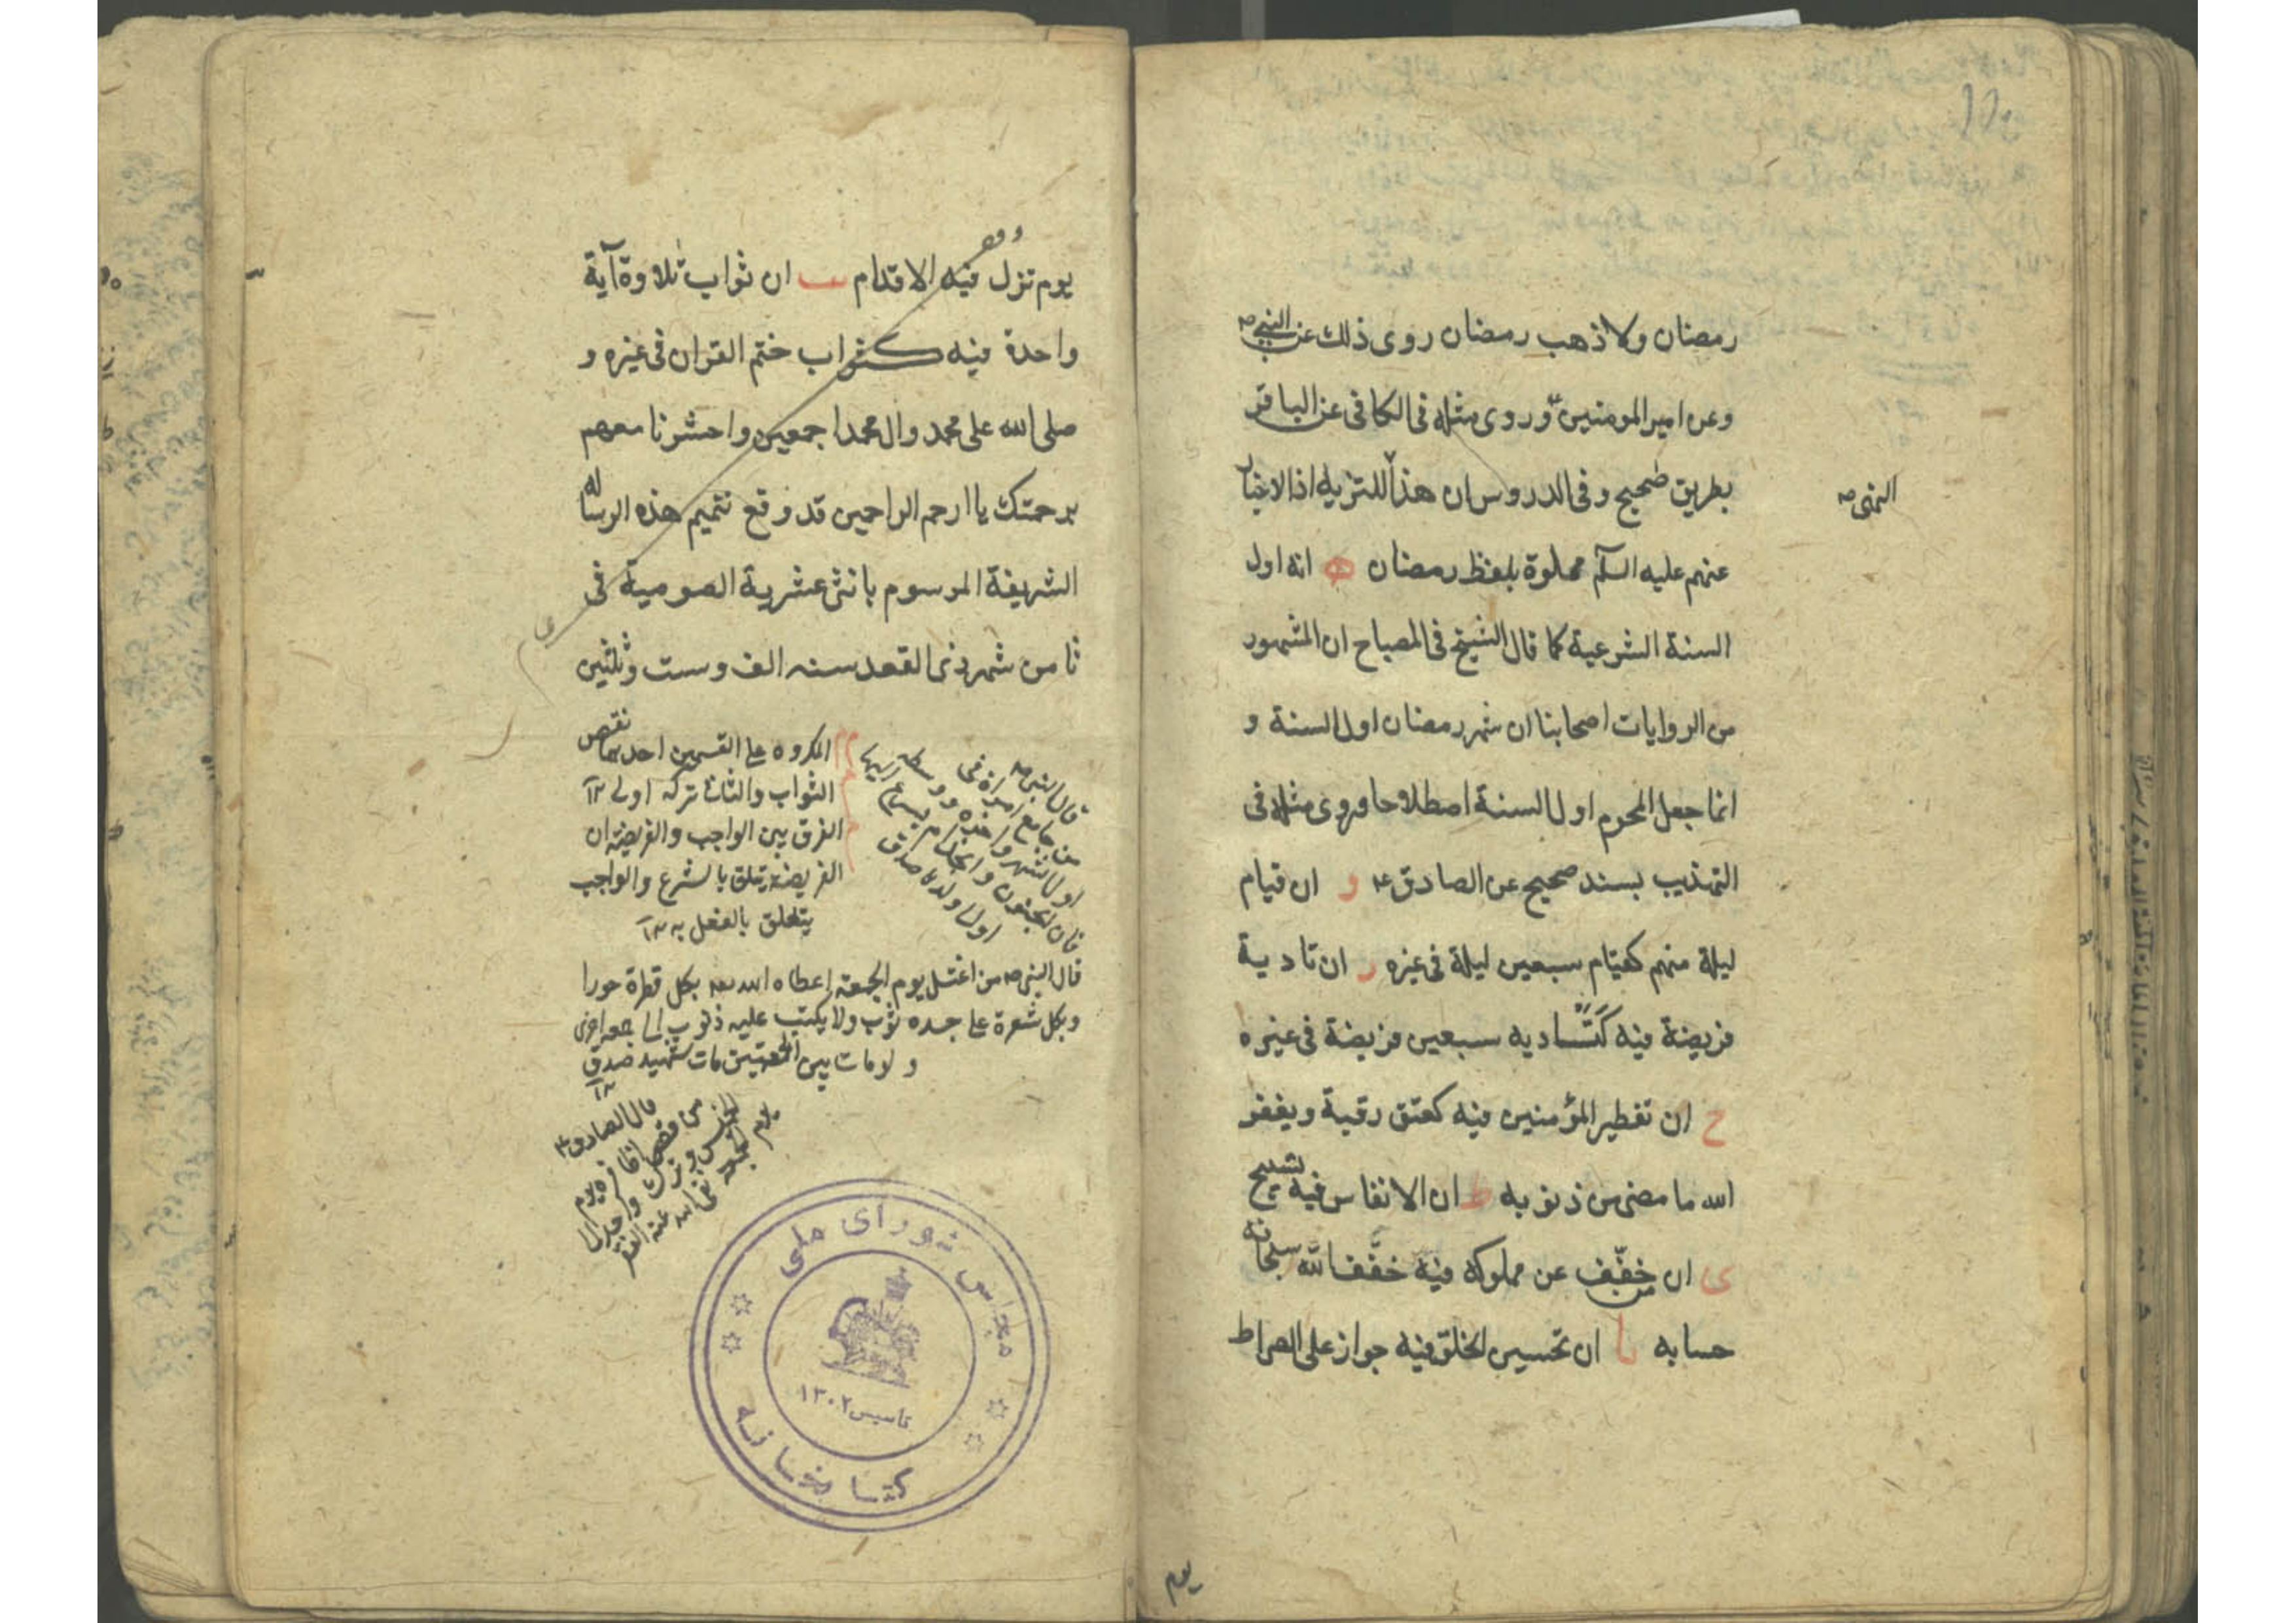 رمضان ولا ذهب رمضان روى ذلك عن النبي ص
وعن امير المومنين ع وروى مثله فى الكافى عن الباقر
بطريق صحيح وفى الدروس ان هذا للتنزيه اذ الاخبار
النهى ص
عنهم عليه السلم مملوة بلفظ رمضان ه انه اول
السنة الشرعية كما قال الشيخ فى المصباح ان المشهور
من الروايات اصحابنا ان شهر رمضان اول السنة و
انما جعل المحرم اول السنة اصطلاحا وروى مثله فى
التهذيب بسند صحيح عن الصادق ع و ان قيام
ليلة منهم كقيام سبعين ليلة فى غيره ز ان تادية
فريضة فيه كتاديه سبعين فريضة فى غيره
ح ان تفطير المؤمنين فيه كعتق رقبة ويغفر
الله ما مضى من ذنوبه ط ان الانفاس فيه تسبيح
ى ان من خفّف عن مملوكه فيه خفّف الله سبحانه
حسابه يا ان تحسين الخلق فيه جواز على الصراط
يوم
وقف
يوم تزل فيه الاقدام يب ان ثواب تلاوة آية
واحدة فيه كثواب ختم القران فى غيره و
صلى الله على محمد وال محمد اجمعين واحشرنا معهم
برحمتك يا ارحم الراحمين قد وقع تتميم هذه الرساله
الشريفة المرسوم باثنى عشرية الصومية فى
ثامن شهر ذى القعد سنه الف وست وثلثين
المكروه على القسمين احدهما نقص
الثواب والثانى تركه اولى ١٢
الفرق بين الواجب والفريضة ان
الفريضة يتعلق بالشرع والواجب
يتعلق بالفعل به ١٢
قال النبي ص
من جامع امرأة فى
اول الشهر و
فان الجنون و
اولى ولده صدق
قال النبي ص من اغتسل يوم الجمعة اعطاه الله بكل قطرة حورا
وبكل شعرة على جسده ثوب ولا يكتب عليه ذنوب الى جمعه اخرى
ولو مات بين الجمعتين مات شهيد صدق
١٢
قال الصادق ع
من قص اظافره يوم
الخميس وترك واحد الى
يوم الجمعة نفى الله عنه الفقر
مجلس شوراى ملى
تاسيس ١٣٠٢
كتابخانه